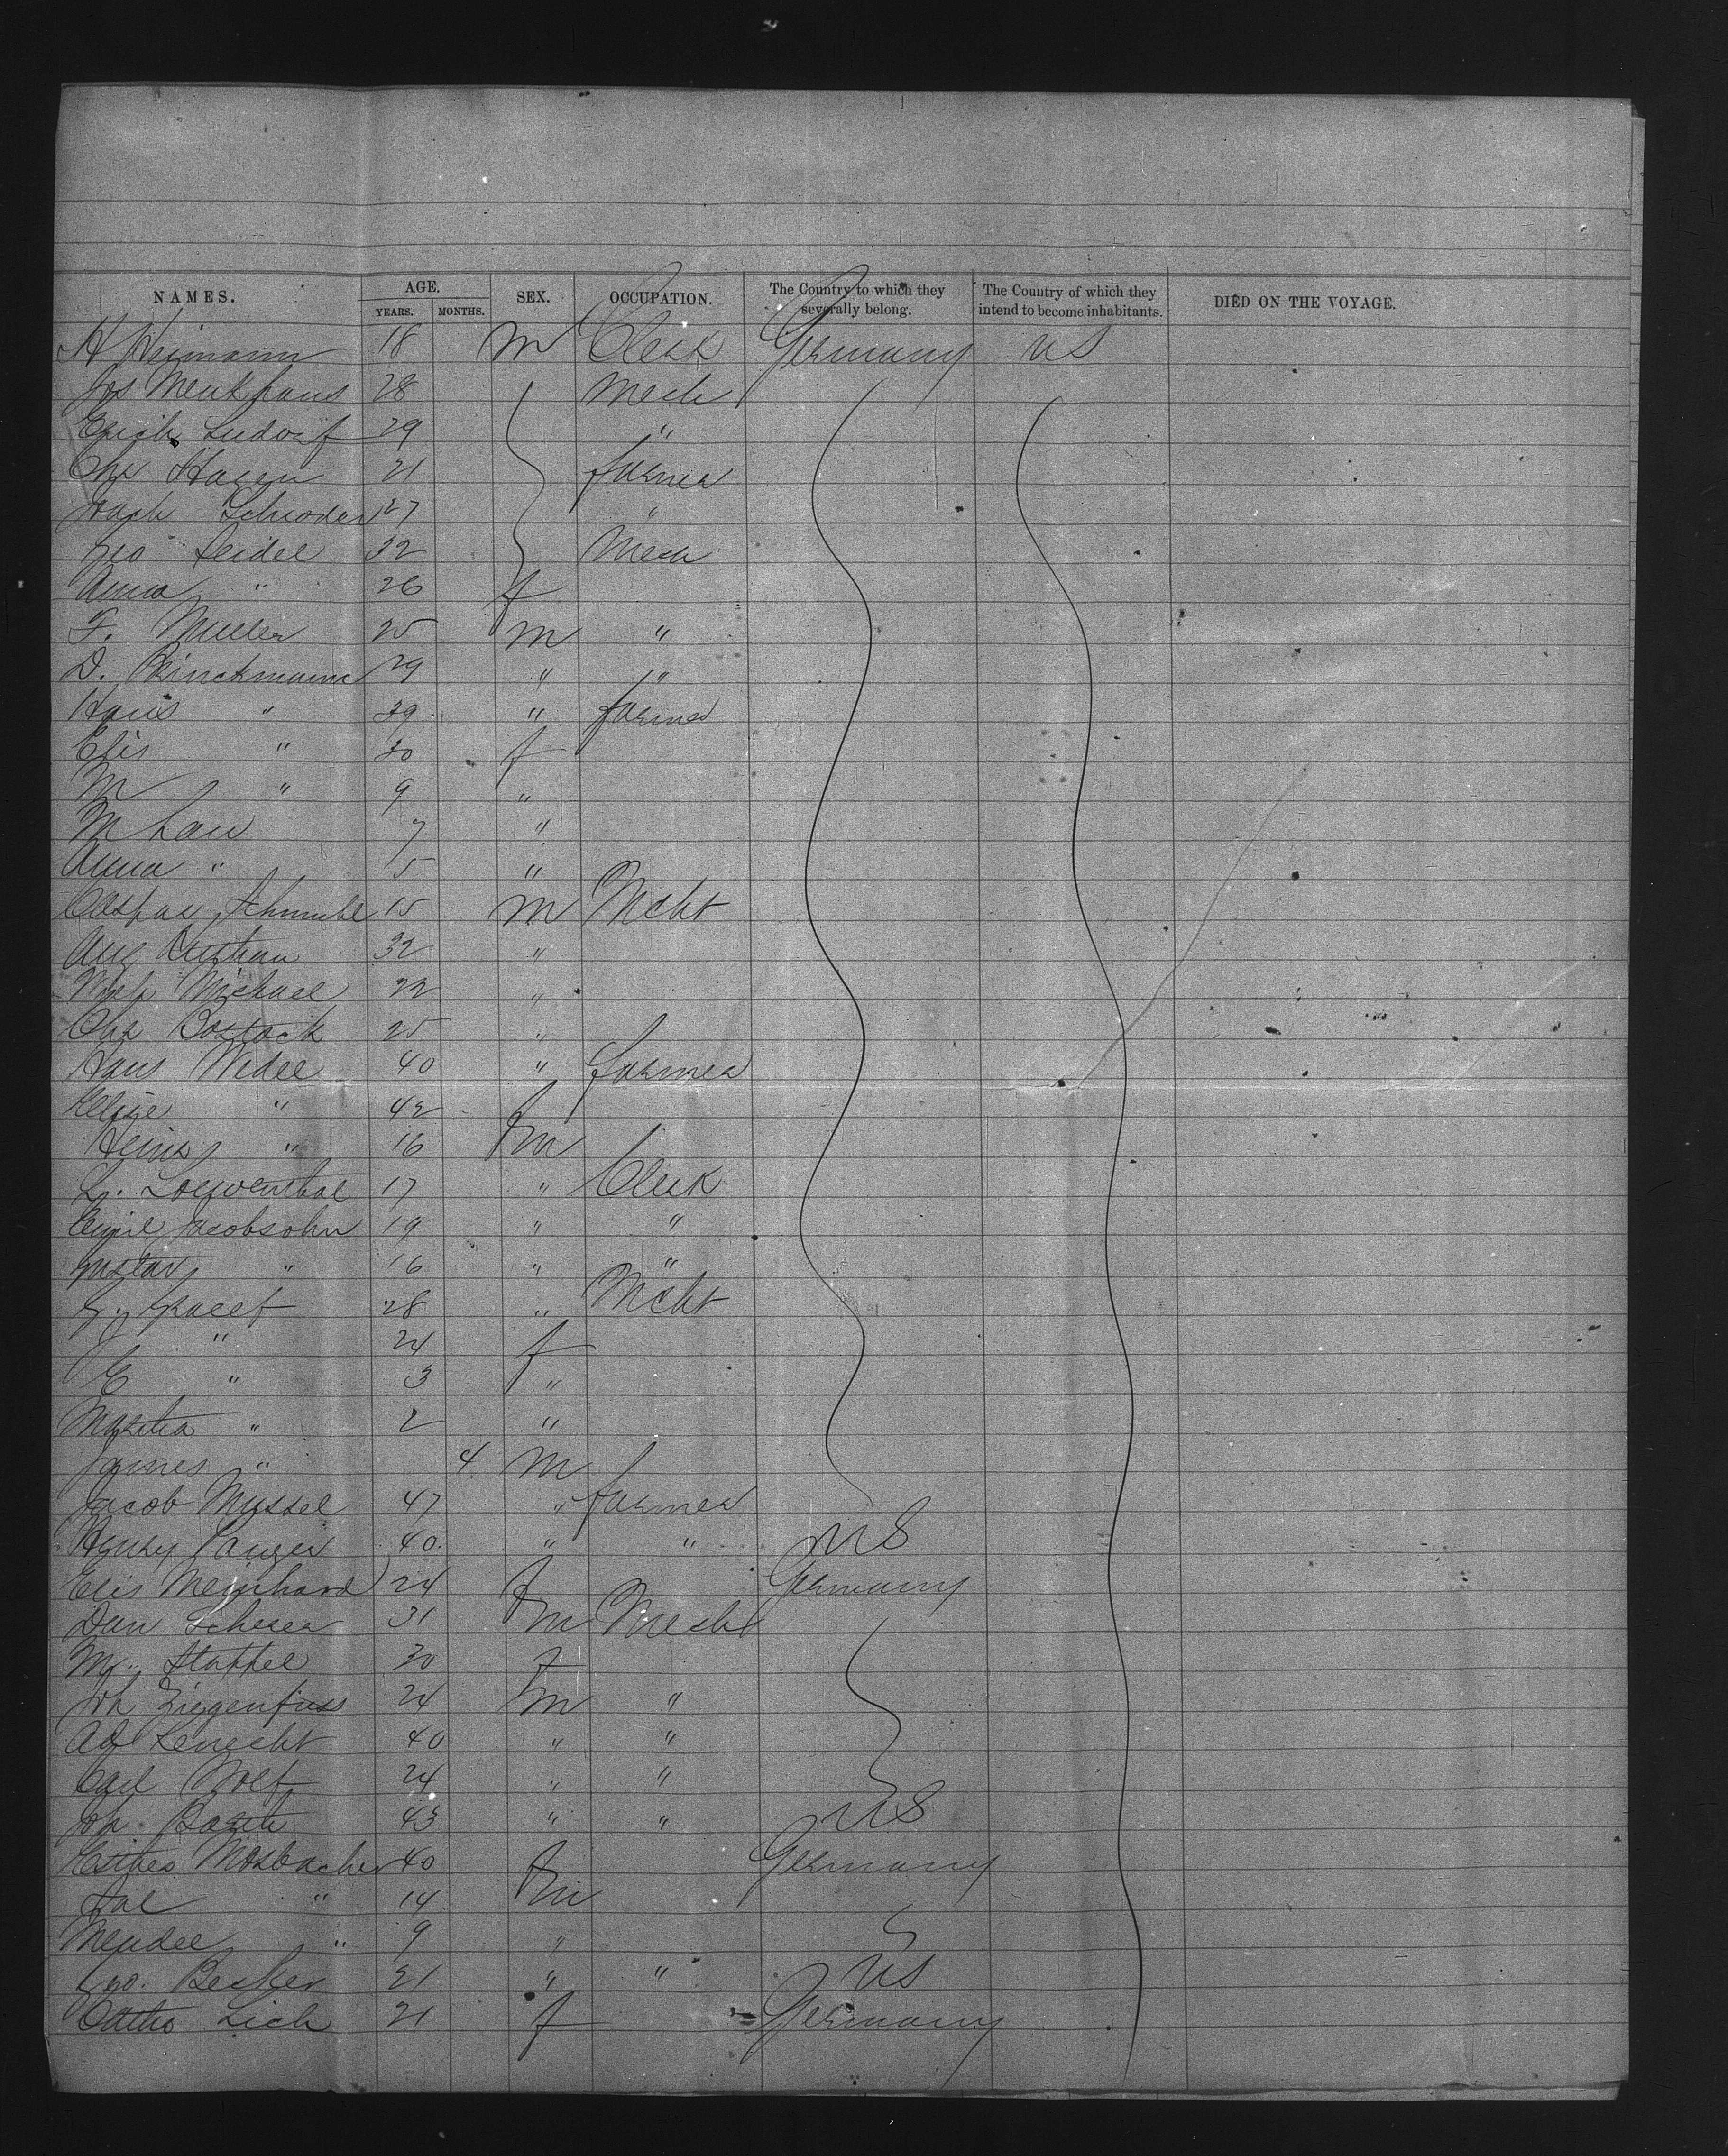 NAMES. AGE. SEX. OCCUPATION. The Country to which they severally belong. The Country of which they intend to become inhabitants. DIED ON THE VOYAGE.
YEARS. MONTHS.
H Heimann 18 m Clerk Germany US
Jos Menkhaus 28 Mech
Erich Ludorf 29 "
Chr Hagen 21 farmer
Joach Schroder 27 "
Geo Seidel 32 Mech
Anna " 26 f
F. Muller 25 m "
D. Brinckmann 29 " "
Hans " 39 " farmer
Elis " 30 f
M " 9 "
M Lau 7 "
Anna " 5 "
Caspar Schmuhl 15 m Mcht
Aug 32 "
Michael 22 "
Chr Bostock 25 "
Hans Wedel 40 " farmer
Elise " 42 f
Heins " 16 m
L. Loewenthal 17 " Clerk
Emil Jacobsohn 19 " "
Gustav " 16 " "
28 " Mcht
" 24 f
E " 3 "
Martha " 2 "
James " 4 m
Jacob Mussel 47 " farmer
Henry 40 " " US
Elis Meinhard 24 f Germany
Dan Scherer 31 m Mech
M. Stappel 30 f
Joh Ziegenfuss 24 m "
Ad Knecht 40 " "
Carl Wolf 24 " "
Joh. 43 " " US
Esther Mosbacher 40 f Germany
Sal " 14 m
Mendel " 9 "
Geo. Becker 21 " " US
Lich 21 f Germany